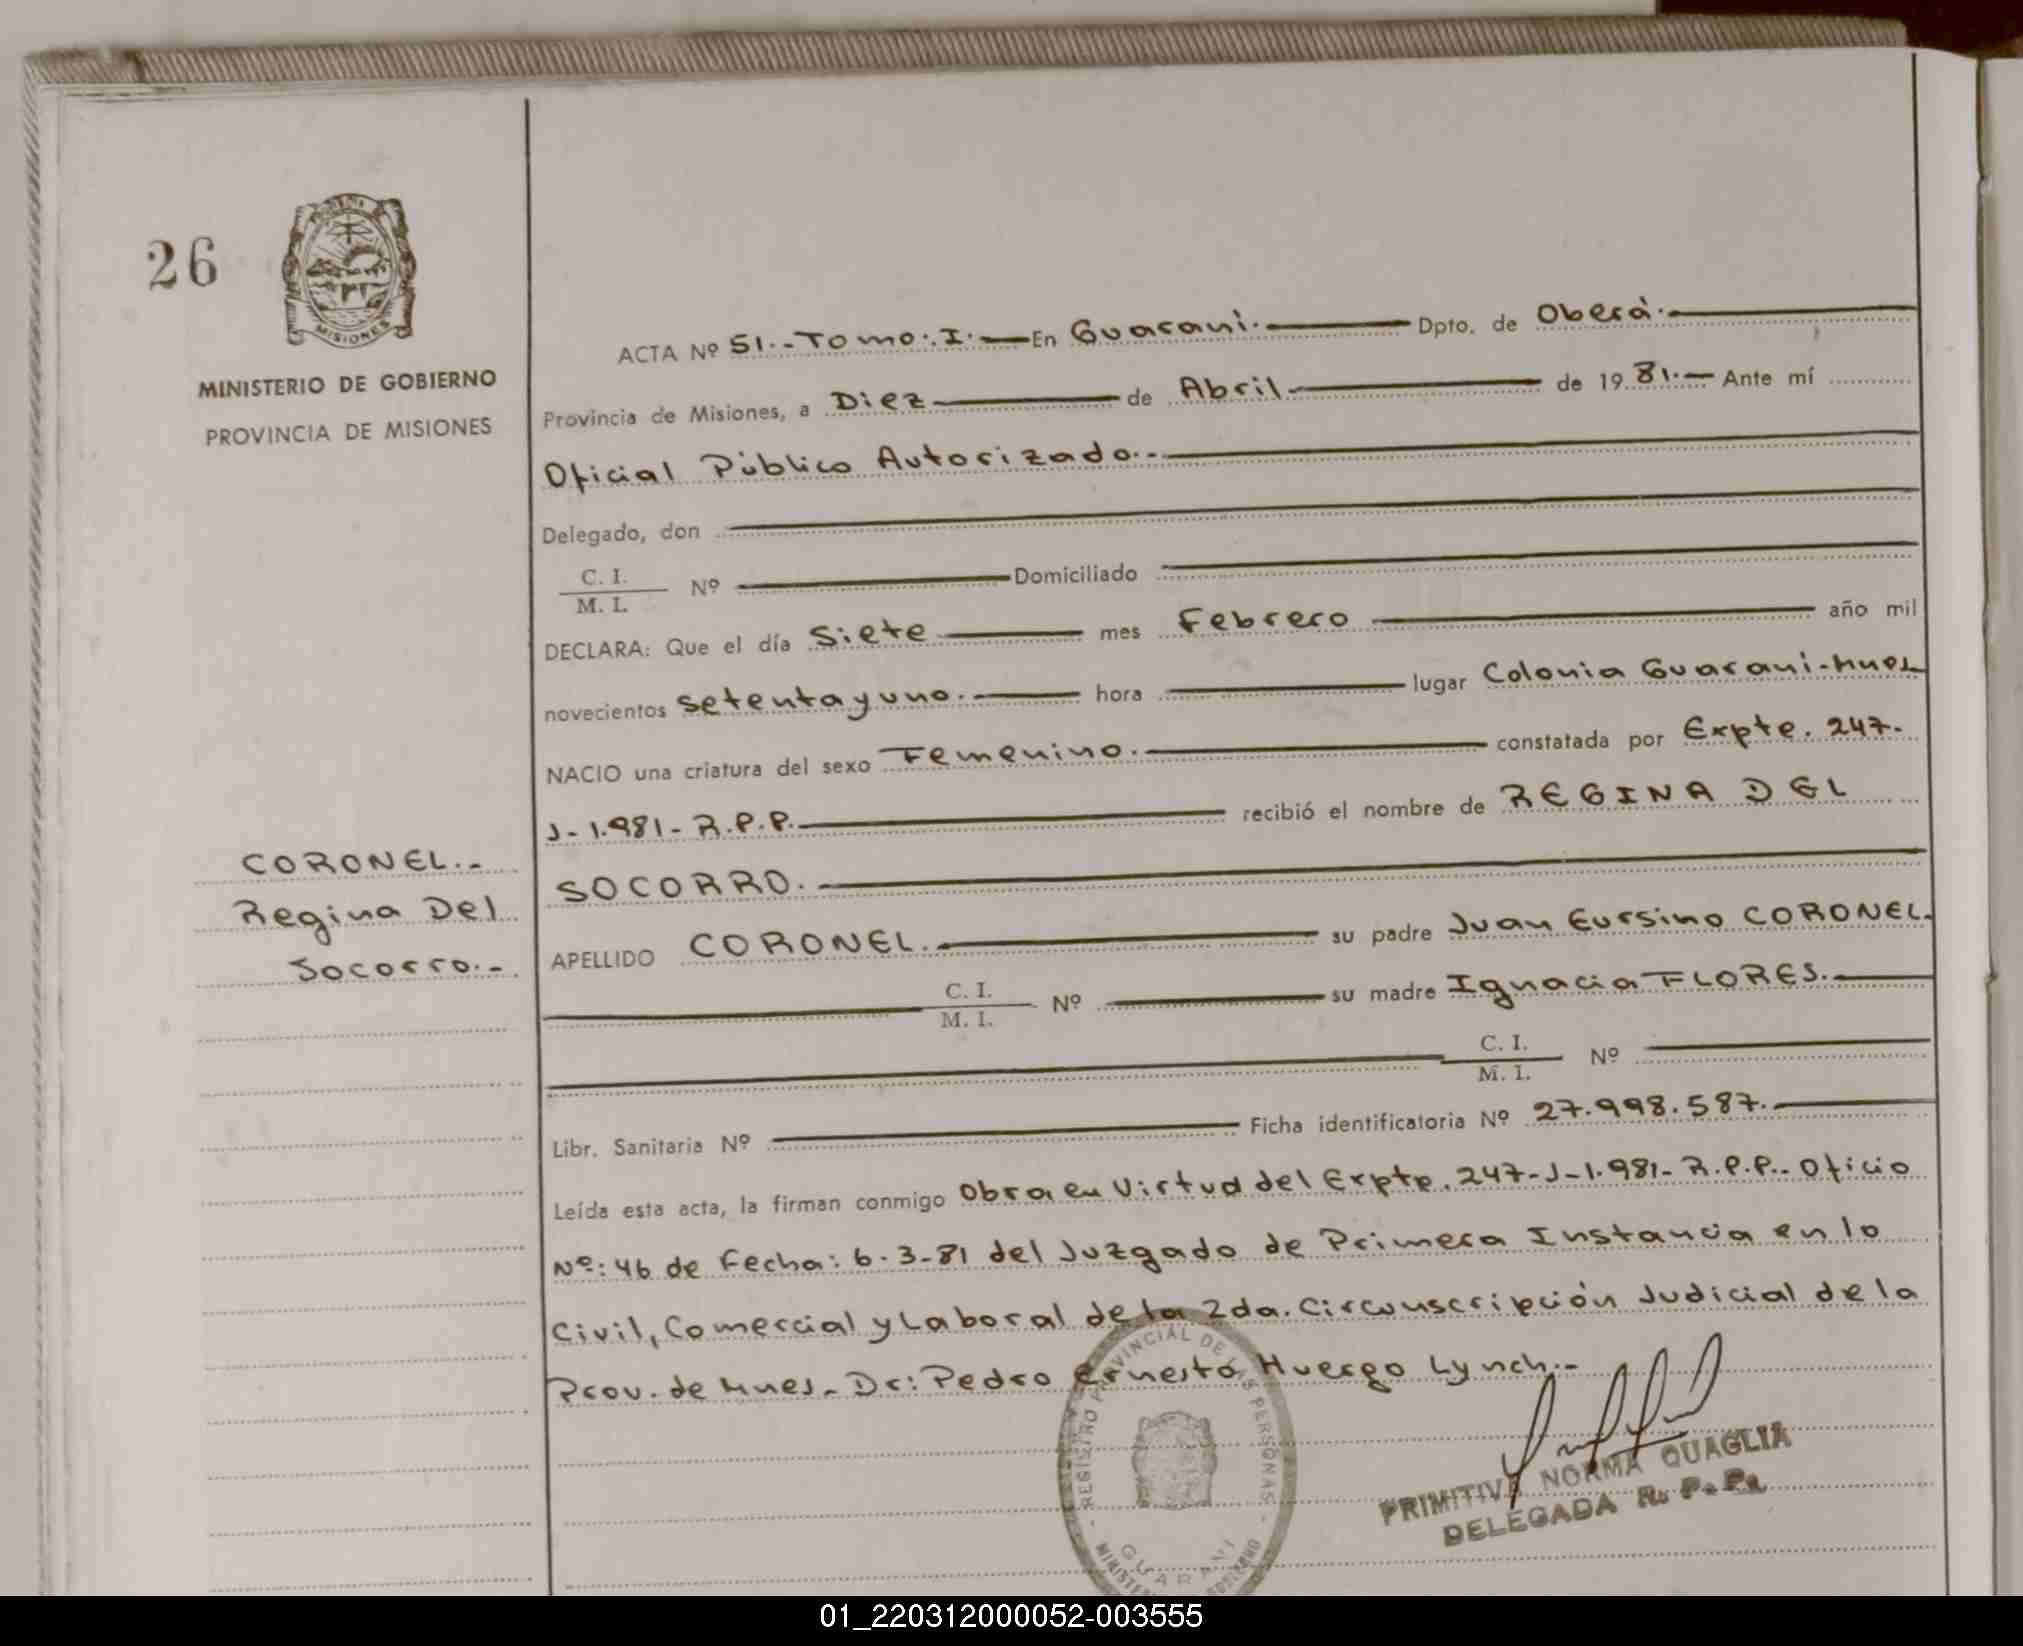 26
MISIONES
MINISTERIO DE GOBIERNO
PROVINCIA DE MISIONES
ACTA Nº 51.-Tomo.I.- En Guarani.- Dpto. de Oberá.-
Provincia de Misiones, a Diez de Abril de 1981.- Ante mí
Oficial Público Autorizado.-
Delegado, don
C. I.
M. I. Nº Domiciliado
DECLARA: Que el día Siete mes Febrero año mil
novecientos setenta y uno. hora lugar Colonia Guarani-Mnes
NACIO una criatura del sexo Femenino. constatada por Expte. 247.
J-1.981-R.P.P. recibió el nombre de REGINA DEL
SOCORRO.
APELLIDO CORONEL. su padre Juan Eursino CORONEL.
C. I.
M. I. Nº su madre Ignacia FLORES.
C. I.
M. I. Nº
Libr. Sanitaria Nº Ficha identificatoria Nº 27.998.587.
Leída esta acta, la firman conmigo Obra en Virtud del Expte. 247-J-1.981-R.P.P.- Oficio
Nº: 46 de Fecha: 6-3-81 del Juzgado de Primera Instancia en lo
Civil, Comercial y Laboral de la 2da. Circunscripción Judicial de la
Prov. de Mnes.- Dr: Pedro Ernesto Huergo Lynch.-
CORONEL.-
Regina Del
Socorro.-
REGISTRO PROVINCIAL DE LAS PERSONAS
GUARANI
PRIMITIVA NORMA QUAGLIA
DELEGADA R. P. P.
01_220312000052-003555